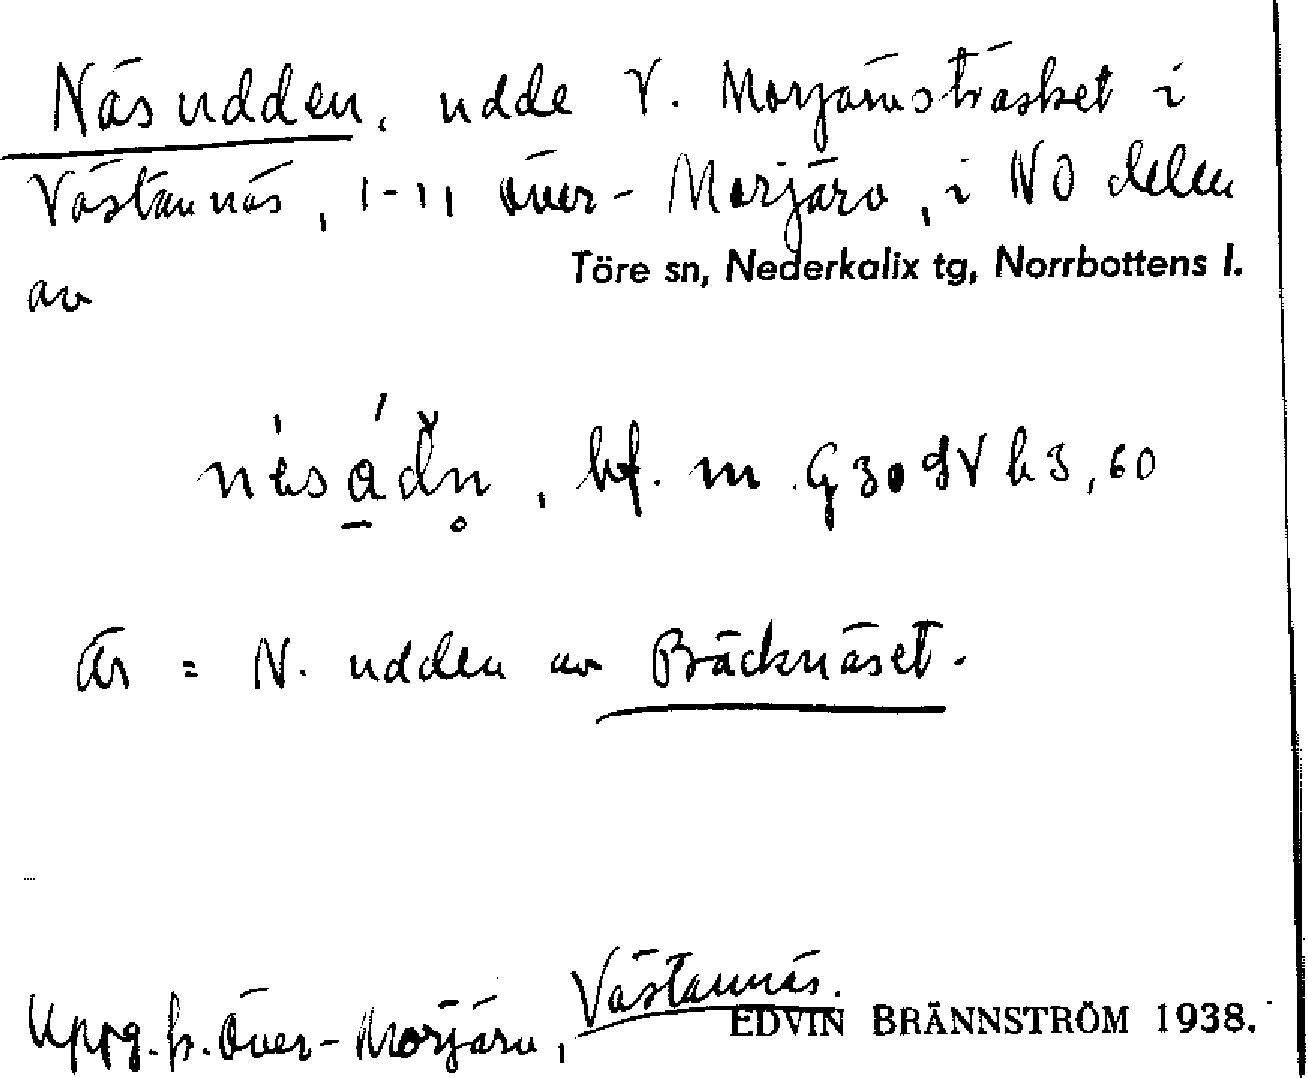 Näsudden, udde V. Morjärnsträsket i
Västannäs, 1-11 Över-Morjärv, i NO delen
Töre sn, Nederkalix tg, Norrbottens l.
av
bf. m
är = N. udden av Bäcknäset.
Uppg. fr. Över-Morjärv, Västannäs.
EDVIN BRÄNNSTRÖM 1938.